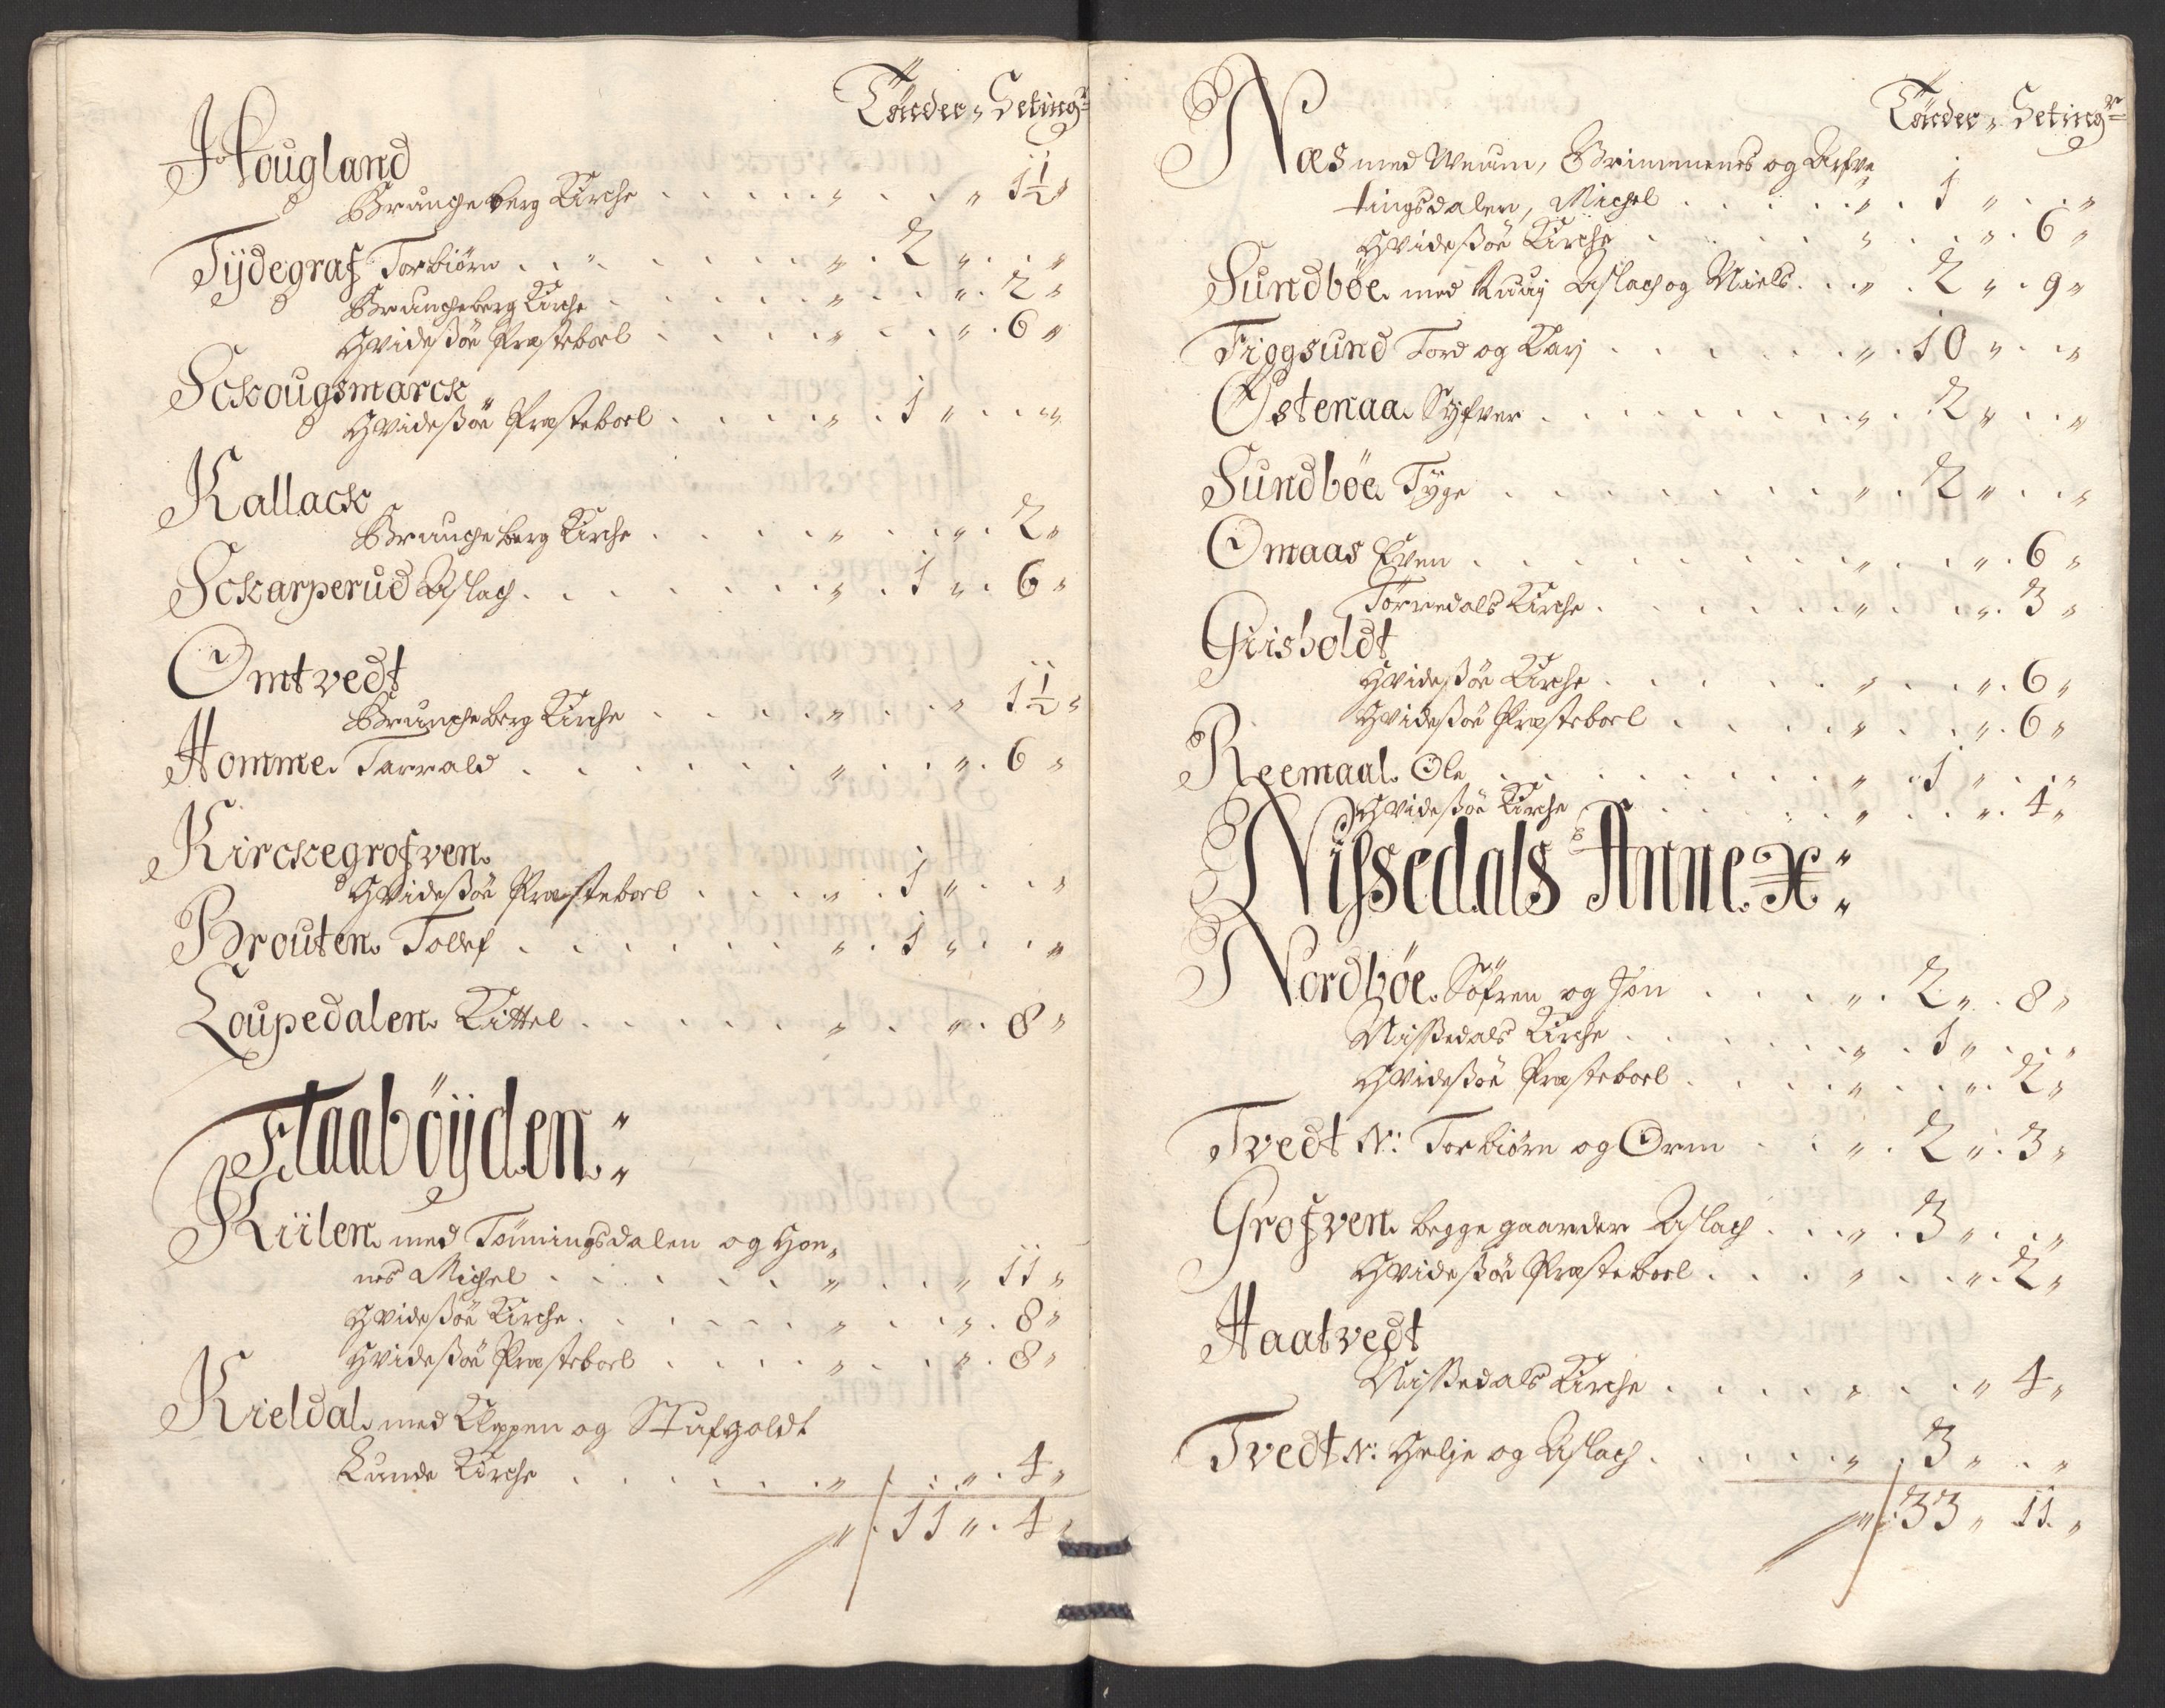 Tønder „ Seting:r
Hougland
Brungeberg Kirche . . . . „ . . „ 1½ „
Tÿdegraf Torbiørn . . „ . . . . „ . 2 „ . . „
Brungeberg Kirche . . . . „ . . „ . 2 „
Hvidesßöe Præsteboel . . . . „ . . „ . 6 „
Sckougsmarck „
Hvidesßöe Præsteboel . . . . „ . 1 „ . . „
Kallack
Brungeberg Kirche . . . . „ . . „ . 2 „
Sckarperud Aslach . . . . . „ . 1 „ . 6 „
Omtvedt
Brungeberg Kirche . . . . „ . . „ 1½ „
Homme. Tarrald . . . . . „ . . „ . 6 „
Kirckegrofven.
Hvidesßöe Præsteboel . . . . „ . 1 „ . . „
Brouten. Tollef . . . . . „ . 1 „ . . „
Loupedalen. Kittel . . . . . „ . . „ . 8 „
Flaaböÿden :
Kiilen. med Tönningsdalen og Hon„
nes Michel . . . . . „ . . „ 11 „
Hvidesßöe Kirche . . . . . „ . . „ . 8 „
Hvidesßöe Præsteboel . . . . „ . . „ . 8 „
Kieldal. med Kleppen og Stufholdt
Lunde Kirche . . . . . „ . . „ . 4 „
„ . 11 „ . 4 „
Tønder „ Seting:r
Næs med Brimnenes og
tingsdalen, Michel . . . . „ . 1 „ . . „
Hvidesßöe Kirche . . . . „ . . „ . 6 „
Sundböe. med Aslach og Niels . . „ . 2 „ . 9 „
Figgsund Tord og Kari . . . . „ . 10 „ . . „
Östenaa. Syfver . . . . . „ . 2 „ . . „
Sundböe. Tÿge . . . . . „ . 2 „ . . „
Omaas Even . . . . . „ . . „ . 6 „
Törredals Kirche . . . . „ . . „ . 3 „
Griisholdt
Hvidesßöe Kirche . . . . „ . . „ . 6 „
Hvidesßöe Præsteboel . . . . „ . . „ . 6 „
Reemaal. Ole . . . . . „ . 1 „ . . „
Hvidesßöe Kirche . . . . „ . . „ . 4 „
Nissedals Annex :
Nordböe. Söfren og Jon . . . . „ . 2 „ . 8 „
Nissedals Kirche . . . . „ . 1 „ . . „
Hvidesßöe Præsteboel . . . . „ . . „ . 2 „
Tvedt N: Torbiørn og Orm . . „ . 2 „ . 3 „
Grofven. begge gaarder Aslach . . „ . 3 „ . . „
Hvidesßöe Præsteboel . . . „ . . „ . 2 „
Haatvedt
Nissedals Kirche . . . . „ . . „ 4 „
Tvedt N: Helje og Aslach . . . . „ . 3 „ . . „
„ . 33 „ 11 „